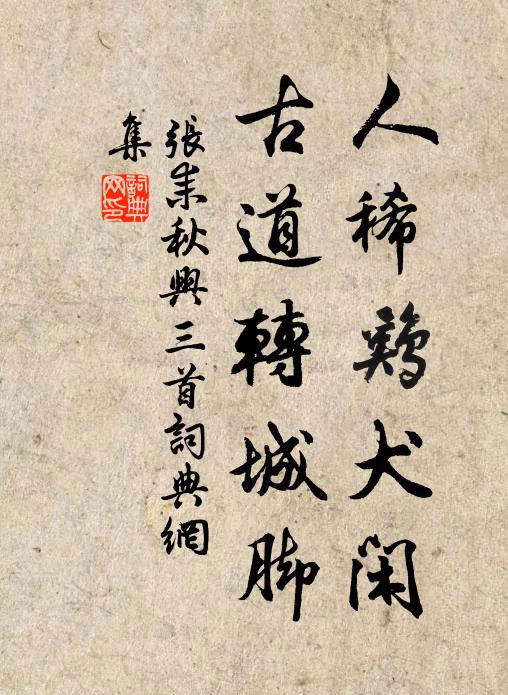 人稀鷄犬閑
古道轉城脚
張耒秋興三首詞典網
集
詞典
网印